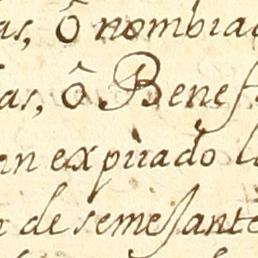 as, ô nombra
as, ô Benef
an expirado l
de semejante